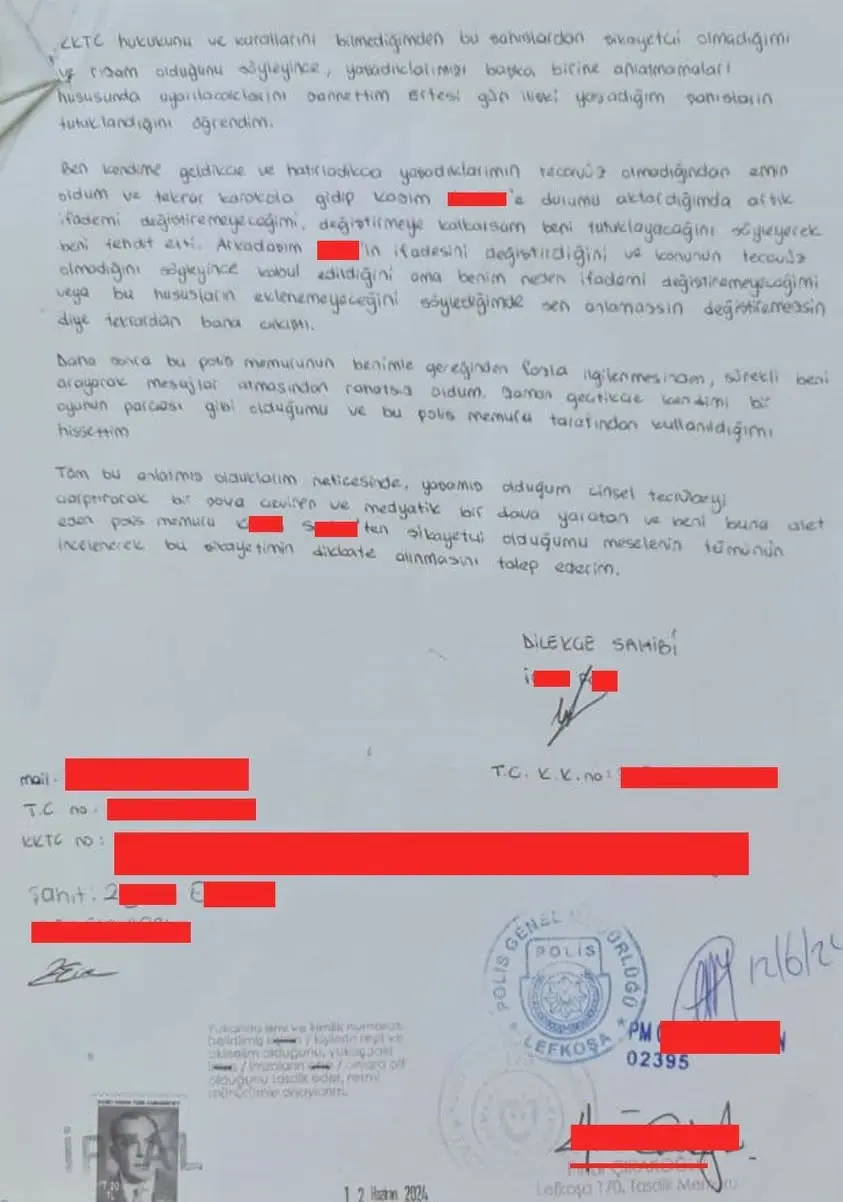 KKTC hukukunu ve kurallarını bilmediğimden bu şahıslardan şikayetçi olmadığımı
ve rızam olduğunu söyleyince, yaşadıklarımızı başka birine anlatmamaları
hususunda uyarılacaklarını zannettim ertesi gün ilişki yaşadığım şahısların
tutuklandığını öğrendim.
Ben kendime geldikçe ve hatırladıkça yaşadıklarımın tecavüz olmadığından emin
oldum ve tekrar karakola gidip Kasım 'a durumu aktardığımda artık
ifademi değiştiremeyeceğimi, değiştirmeye kalkarsam beni tutuklayacağını söyleyerek
beni tehdit etti. Arkadaşım 'in ifadesini değiştirdiğini ve konunun tecavüz
olmadığını söyleyince kabul edildiğini ama benim neden ifademi değiştiremeyeceğimi
veya bu hususların eklenemeyeceğini söylediğimde sen anlamazsın değiştiremezsin
diye tekrardan bana çıkıştı.
Daha sonra bu polis memurunun benimle gereğinden fazla ilgilenmesinden, sürekli beni
arayarak mesajlar atmasından rahatsız oldum. Zaman geçtikçe kendimi bir
oyunun parçası gibi olduğumu ve bu polis memuru tarafından kullanıldığımı
hissettim
Tüm bu anlatmış olduklarım neticesinde, yaşamış olduğum cinsel tecrübeyi
çarpıtarak bir davaya çeviren ve medyatik bir dava yaratan ve beni buna alet
eden polis memuru K S 'ten şikayetçi olduğumu meselenin tümünün
incelenerek bu şikayetimin dikkate alınmasını talep ederim.
DİLEKÇE SAHİBİ
İ
mail.
T.C. K.K.no:
T.C no.
KKTC no:
Şahit: 2 E
POLİS GENEL MÜDÜRLÜĞÜ
POLİS
LEFKOŞA
12/6/24
PM
02395
Yukarıda ismi ve kimlik numarası
belirtilmiş / kişilerin reşit ve
olduğunu, yukarıdaki
/ imzaların / onlara ait
olduğunu tasdik eder, resmi
mühürümle onaylarım.
İPTAL
12 Haziran 2024
Lefkoşa 170, Tasdik Memuru